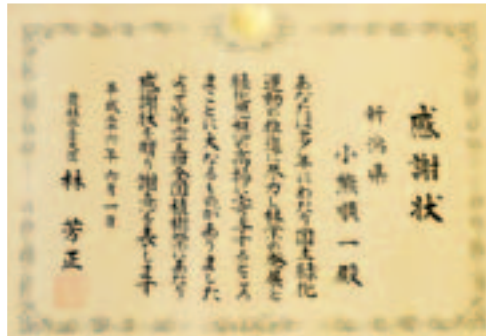 感謝状
新潟県
小熊順一殿
あなたは多年にわたり国土緑化
運動の推進に尽力し林業の発展と
緑化思想の高揚に寄与するところ
まことに大なるものがありました
よって第六十五回全国植樹祭にあたり
感謝状を贈り謝意を表します
平成二十六年六月一日
農林水産大臣 林 芳正